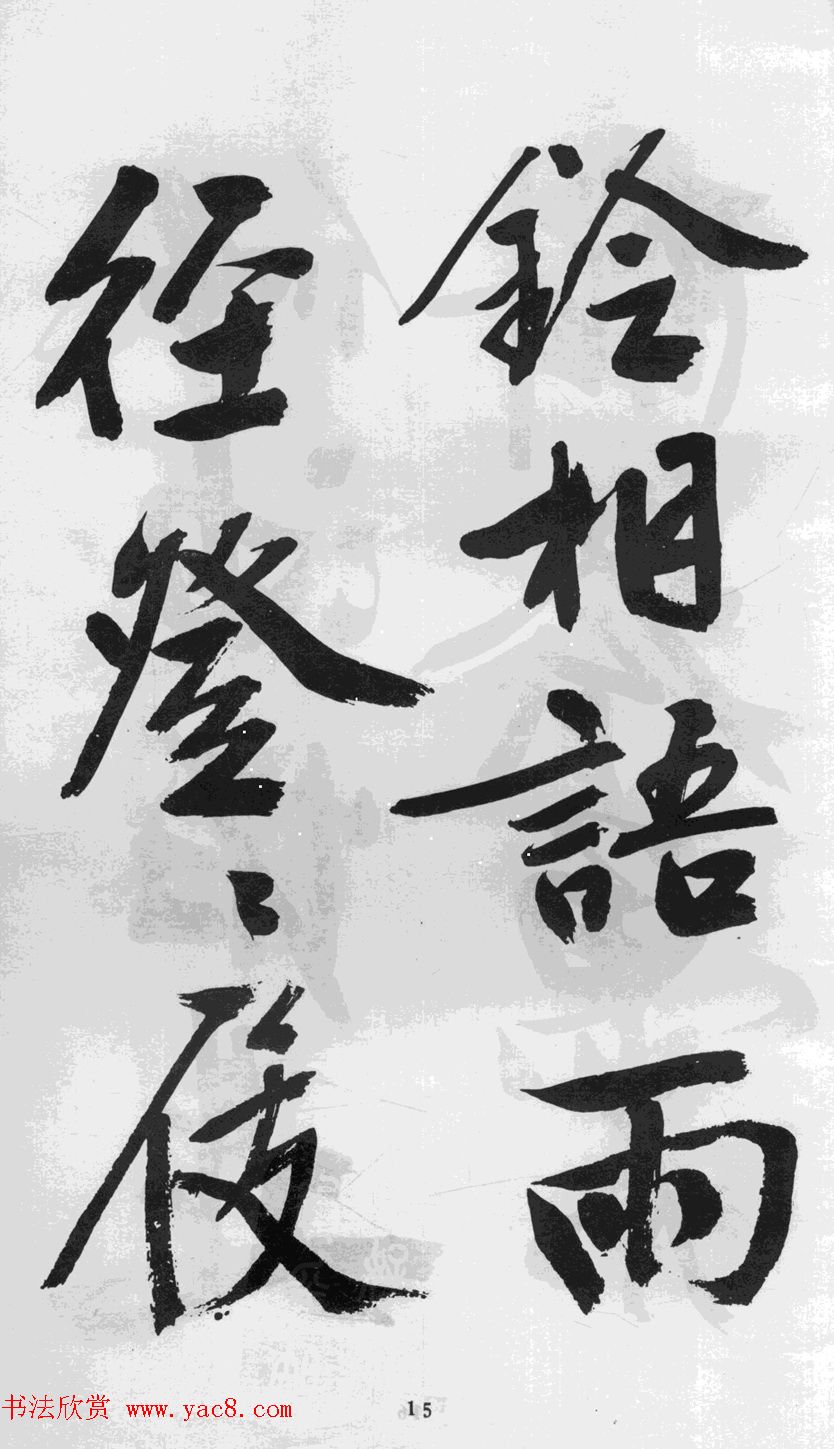 鈴相語雨
徑登〻屐
书法欣赏 www.yac8.com
15